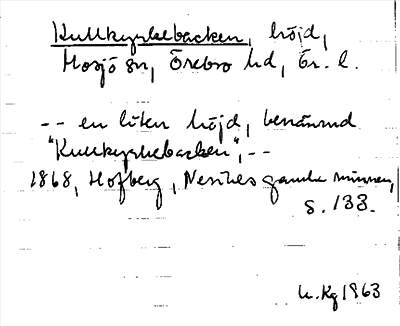 Kullkyrkebacken, höjd,
Mosjö sn, Örebro hd, Ör. l.
-- en liten höjd, benämnd
"Kullkyrkebacken", --
1868, Hofberg, Nerikes gamla minnen,
s. 133.
L. Kg 1963